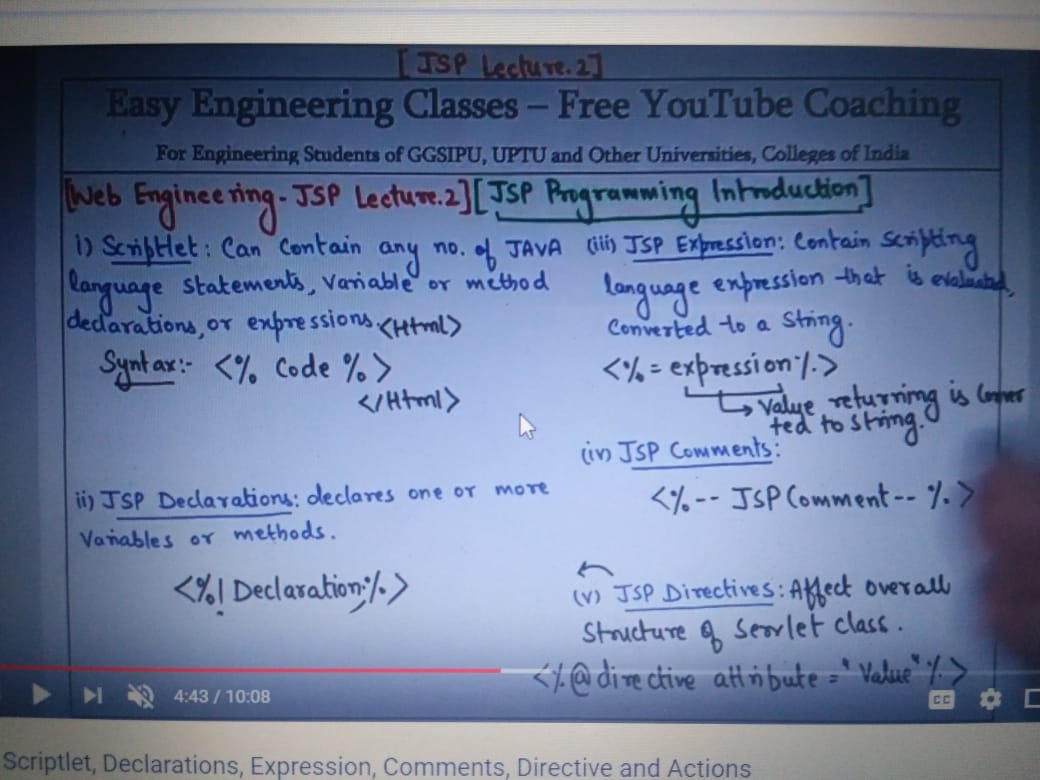 [JSP Lecture.2]
Easy Engineering Classes – Free YouTube Coaching
For Engineering Students of GGSIPU, UPTU and Other Universities, Colleges of India
[Web Engineering - JSP Lecture.2][JSP Programming Introduction]
i) Scriptlet : Can Contain any no. of JAVA
language statements, variable or method
declarations, or expressions. <Html>
Syntax:- <% Code %>
</Html>
ii) JSP Declarations: declares one or more
Variables or methods.
<%! Declaration; %>
(iii) JSP Expression: Contain Scripting
language expression that is evaluated,
Converted to a String.
<%= expression %>
Value returning is Conver
ted to String.
(iv) JSP Comments:
<%-- JSP Comment -- %>
(v) JSP Directives : Affect overall
Structure of Servlet class.
<%@ directive attribute = "Value" %>
4:43 / 10:08
CC
Scriptlet, Declarations, Expression, Comments, Directive and Actions